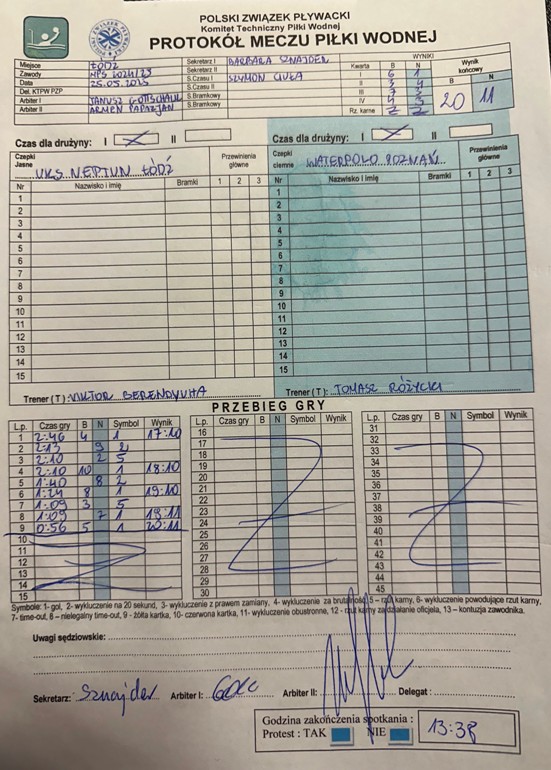 POLSKI ZWIĄZEK PŁYWACKI
Komitet Techniczny Piłki Wodnej
PROTOKÓŁ MECZU PIŁKI WODNEJ
Miejsce ŁÓDŹ
Zawody MPS 2024/25
Data 25.05.2025
Del. KTPW PZP
Arbiter I JANUSZ GOTTSCHALK
Arbiter II ARMEN PAPAZJAN
Sekretarz I BARBARA SZNAJDER
Sekretarz II
S.Czasu I SZYMON
S.Czasu II
S.Bramkowy
S.Bramkowy
WYNIKI
Kwarta B N
I 6 1
II 3 4
III 7 3
IV 4 3
Rz. karne
Wynik końcowy
B N
20 11
Czas dla drużyny: I II
Czas dla drużyny: I II
Czepki Jasne UKS NEPTUN ŁÓDŹ
Przewinienia główne
Nr Nazwisko i imię Bramki 1 2 3
1
2
3
4
5
6
7
8
9
10
11
12
13
14
15
Trener (T): VIKTOR BERENDYUHA
Czepki ciemne WATERPOLO POZNAŃ
Przewinienia główne
Nr Nazwisko i imię Bramki 1 2 3
1
2
3
4
5
6
7
8
9
10
11
12
13
14
15
Trener (T): TOMASZ RÓŻYCKI
PRZEBIEG GRY
L.p. Czas gry B N Symbol Wynik
1 2:46 4 1 17:10
2 2:13 9 2
3 2:10 2 5
4 2:10 10 1 18:10
5 1:40 8 2
6 1:24 8 1 19:10
7 1:09 3 5
8 1:09 7 1 19:11
9 0:56 5 1 20:11
10
11
12
13
14
15
Lp. Czas gry B N Symbol Wynik
16
17
18
19
20
21
22
23
24
25
26
27
28
29
30
L.p. Czas gry B N Symbol Wynik
31
32
33
34
35
36
37
38
39
40
41
42
43
44
45
Symbole: 1- gol, 2- wykluczenie na 20 sekund, 3- wykluczenie z prawem zamiany, 4- wykluczenie za brutalność, 5 – rzut karny, 6- wykluczenie powodujące rzut karny,
7- time-out, 8 – nielegalny time-out, 9 - żółta kartka, 10- czerwona kartka, 11- wykluczenie obustronne, 12 - rzut karny za działanie oficjela, 13 – kontuzja zawodnika.
Uwagi sędziowskie:
Sekretarz: Sznajder Arbiter I: Arbiter II: Delegat :
Godzina zakończenia spotkania : 13:38
Protest : TAK NIE